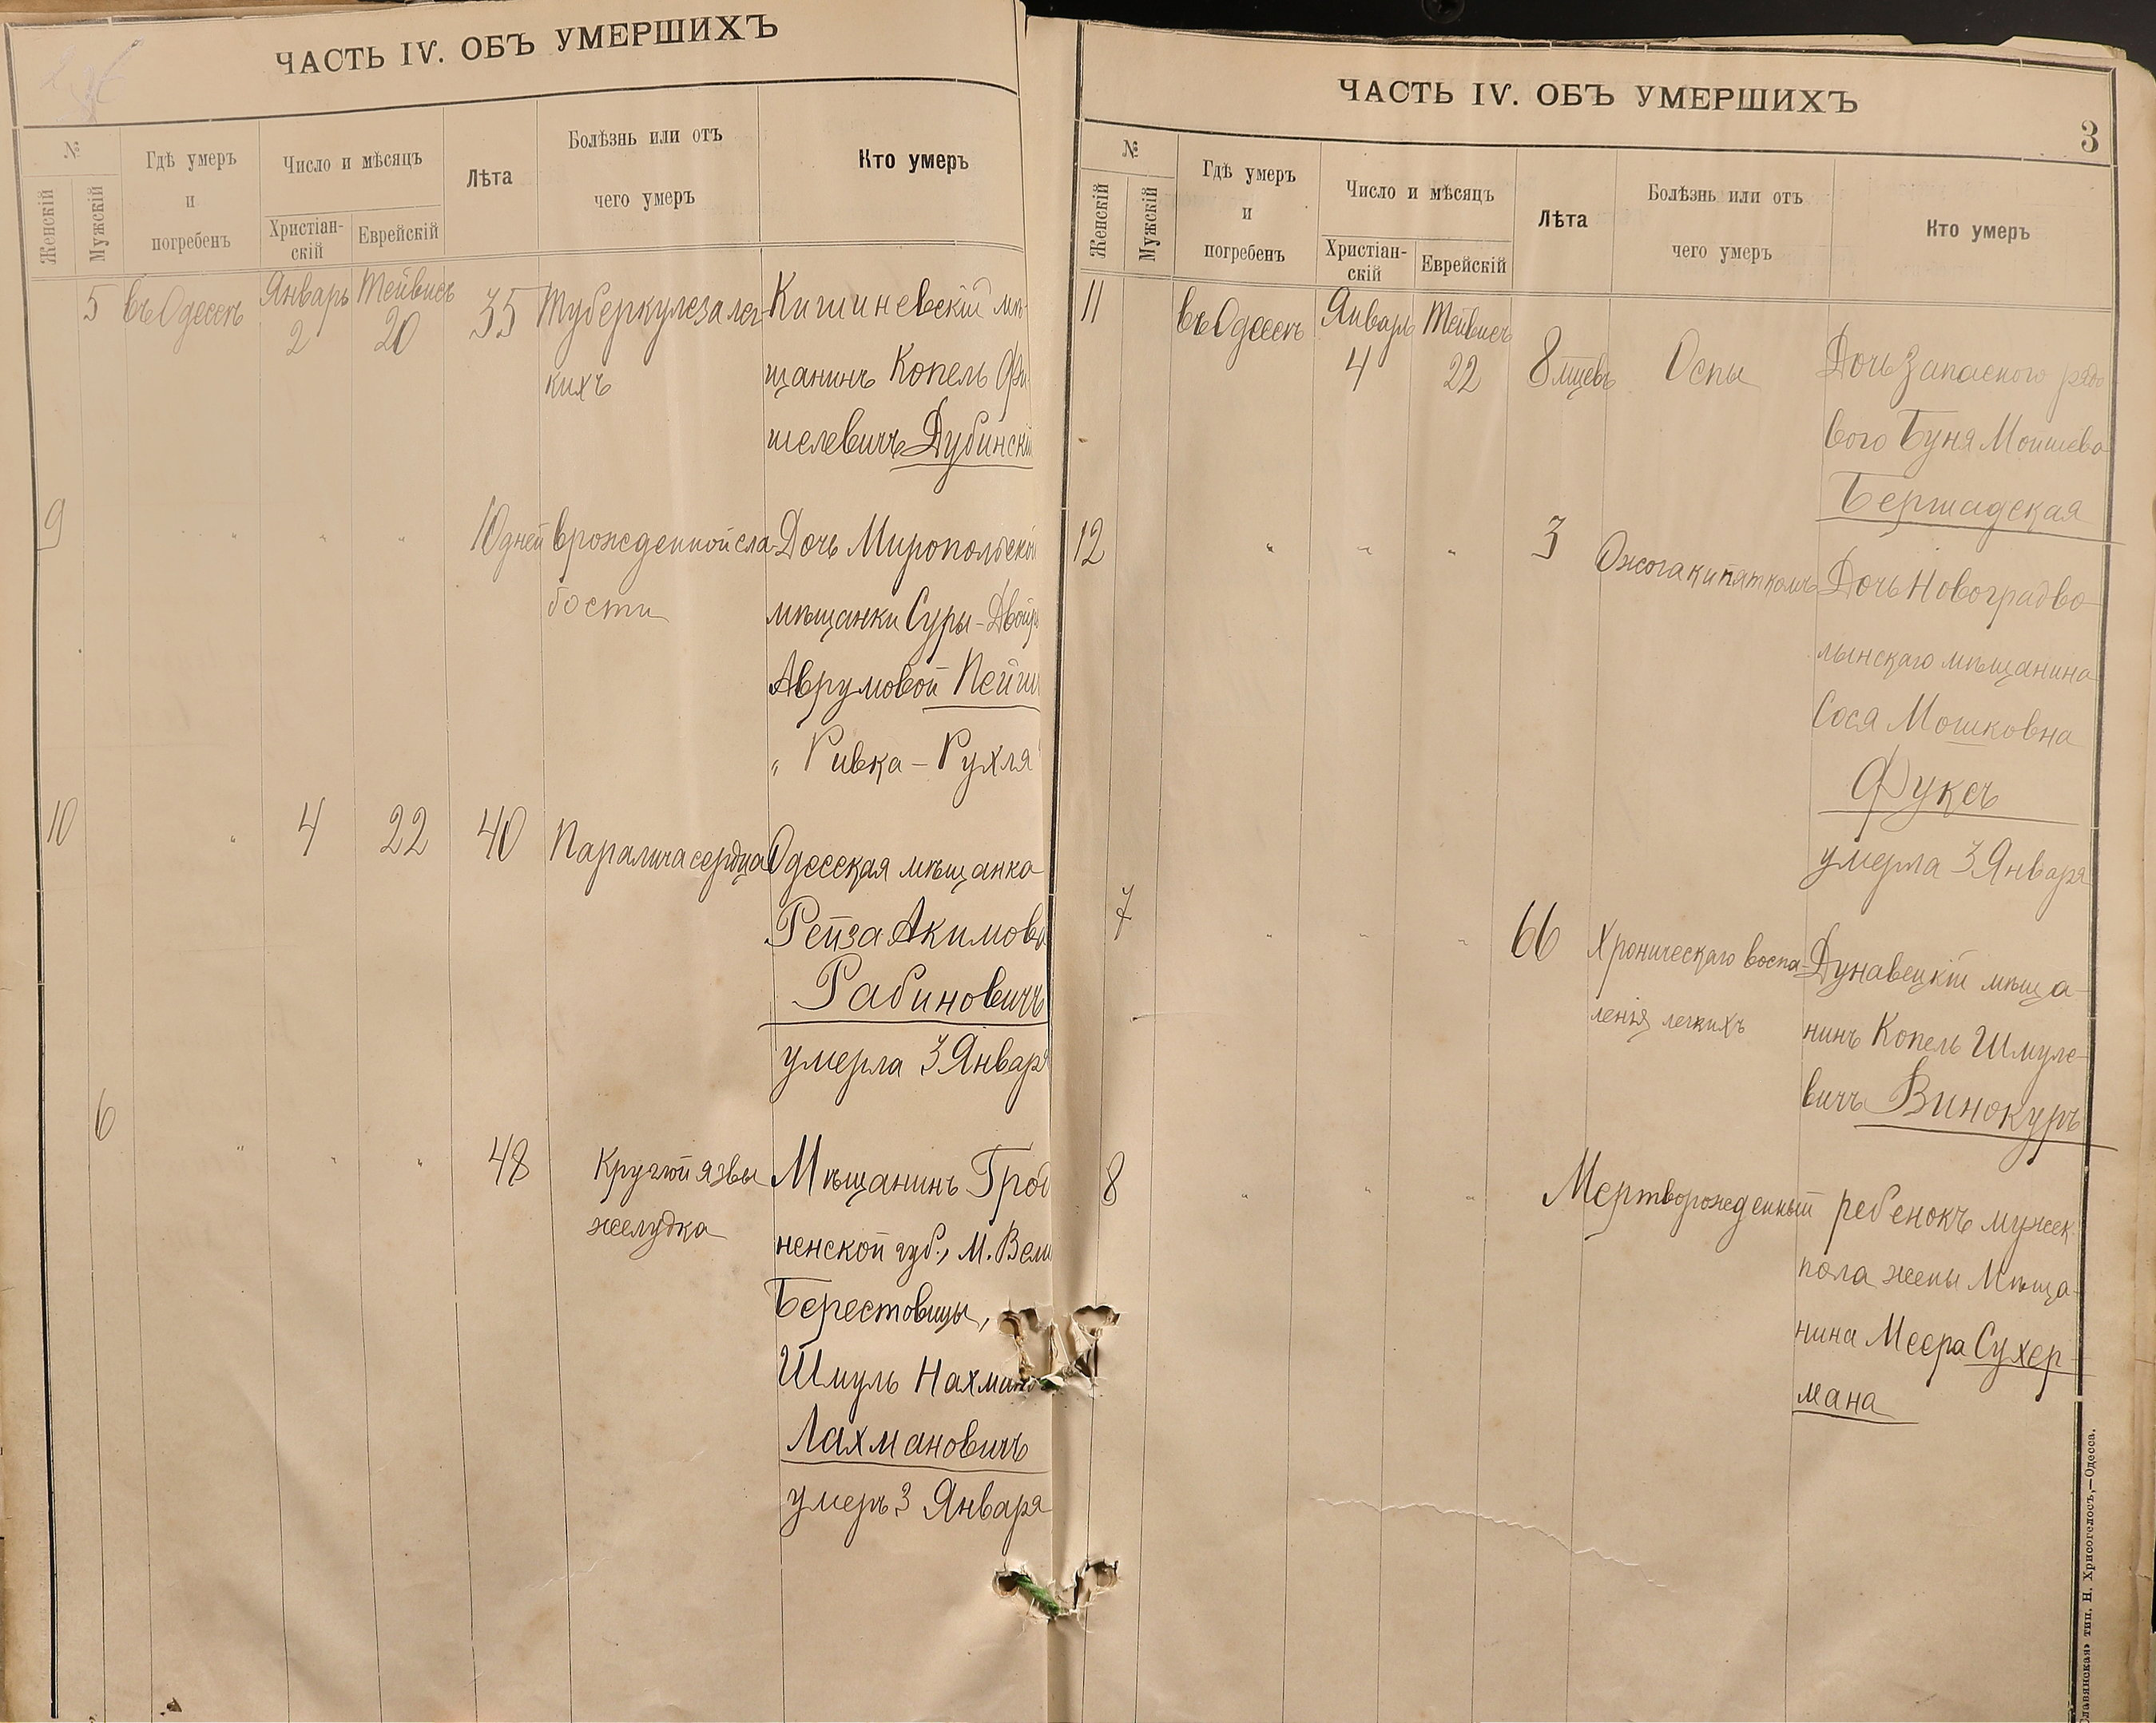 ЧАСТЬ IV. ОБЪ УМЕРШИХЪ
№
Женскій
Мужскій
Гдѣ умеръ
и
погребенъ
Число и мѣсяцъ
Христіан-
скій
Еврейскій
Лѣта
Болѣзнь или отъ
чего умеръ
Кто умеръ
5
въ Одессѣ
Январь
2
Тейвисъ
20
35
Туберкулеза лег-
кихъ
Кишиневскій мѣ-
щанинъ Копель Фи-
шелевичъ Дубинскі
9
" " "
10 дней
врожденной сла-
бости
Дочь Миропольской
мѣщанки Суры-Двойр
Аврумовой Пейи
„ Ривка-Рухля "
10
"
4
22
40
Паралича сердца
Одесская мѣщанка
Рейза Акимов
Рабиновичъ
умерла 3 Январ
6
" " "
48
Круглой язвы
желудка
Мѣщанинъ Грод
ненской губ., М. Вели
Берестовицы,
Шмуль
Лахмановичъ
умеръ 3 Января
ЧАСТЬ IV. ОБЪ УМЕРШИХЪ
3
№
Женскій
Мужскій
Гдѣ умеръ
и
погребенъ
Число и мѣсяцъ
Христіан-
скій
Еврейскій
Лѣта
Болѣзнь или отъ
чего умеръ
Кто умеръ
11
въ Одессѣ
Январь
4
Тейвисъ
22
8 мцевъ
Оспы
Дочь Запасного рядо
вого Буня Мошева
Бершадская
12
" " "
3
Ожога кипяткомъ
Дочь Новоградво-
лынскаго мѣщанина
Сося Мошковна
Фуксъ
умерла 3 Января
7
" " "
66
Хроническаго воспа-
ленія легкихъ
Дунавецкій мѣща-
нинъ Копель Шмуле-
вичъ Винокуръ
8
" " "
Мертворожденный ребенокъ мужск.
пола жены Мѣща-
нина Меера Сухер-
мана
Славянская» тип. Н. Хрисогелосъ,—Одесса.